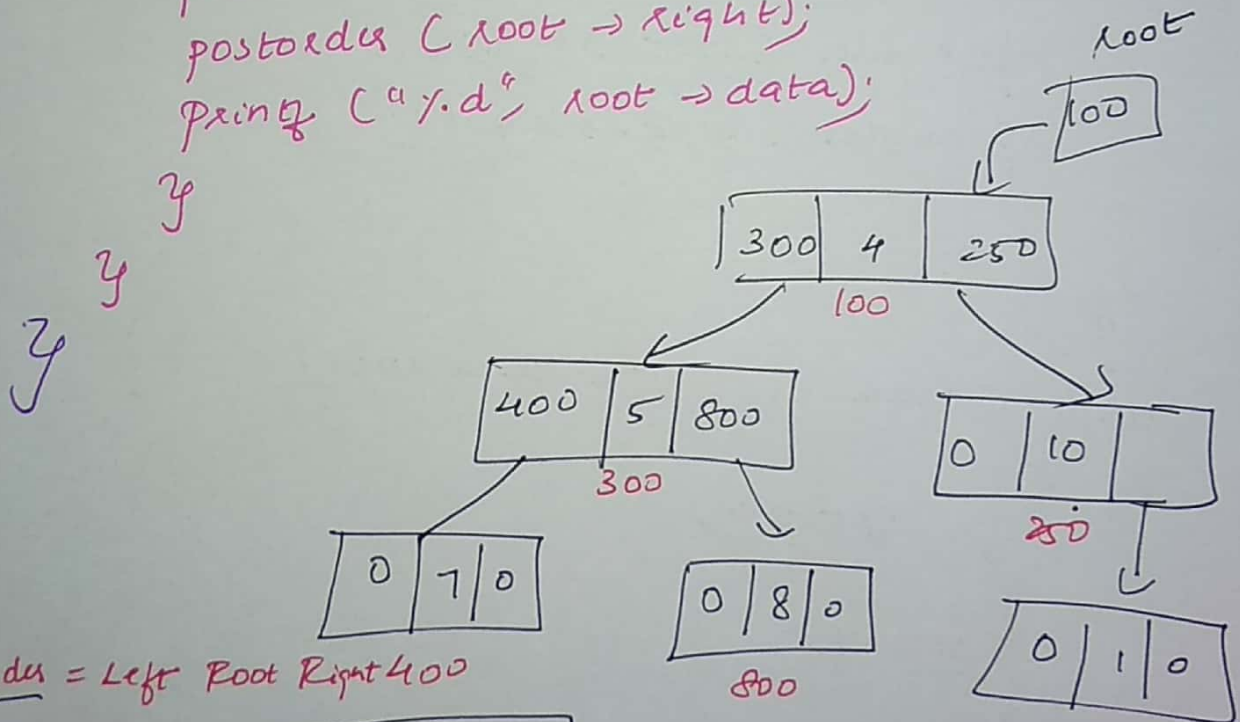 postorder (root → right);
printf ("%d", root → data);
}
}
}
root
100
300 4 250
100
400 5 800
300
0 10
250
0 7 0
0 8 0
800
0 1 0
der = Left Root Right 400